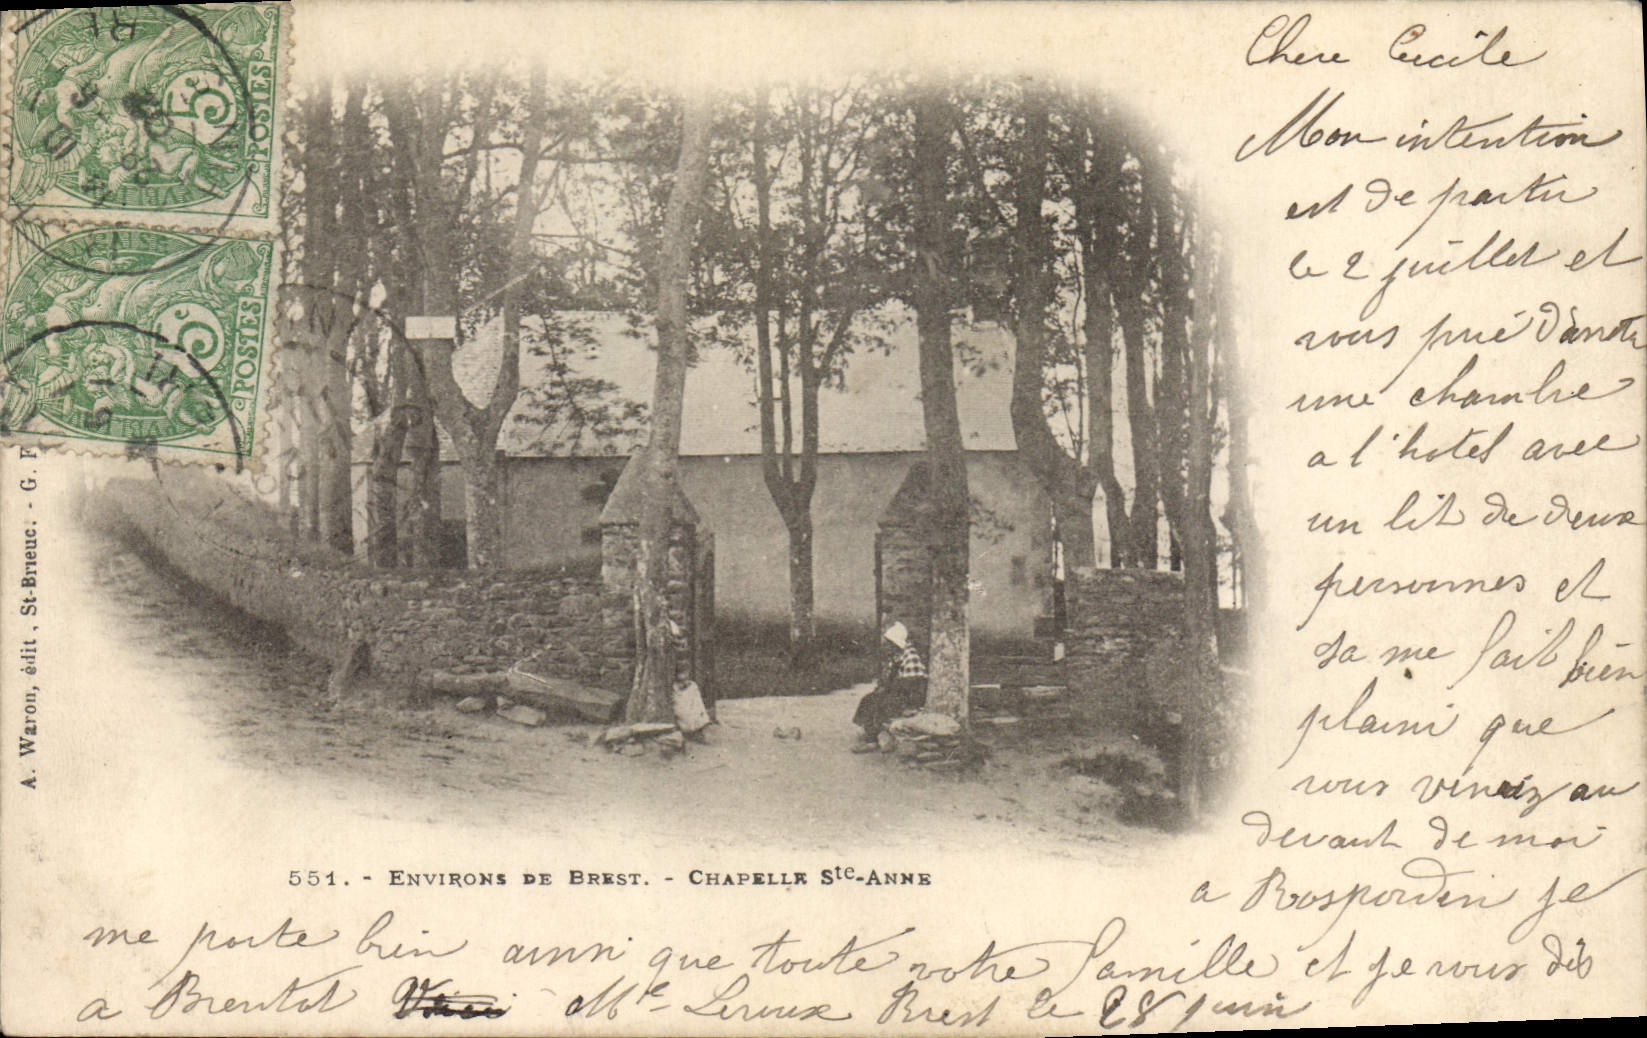 Chere Cecile
Mon intention
est de partir
le 2 juillet et
vous prié d'arreter
une chambre
a l'hotel avec
un lit de deux
personnes et
sa me fait bien
plaisir que
vous veniez au
devant de moi
a Rosporden je
me porte bien ainsi que toute votre famille et je vous dis
a Bientot Mle Leroux Brest le 28 juin
551. - ENVIRONS DE BREST. - CHAPELLE Ste-ANNE
A. Waron, édit., St-Brieuc. - G. F
5 POSTES
5 POSTES